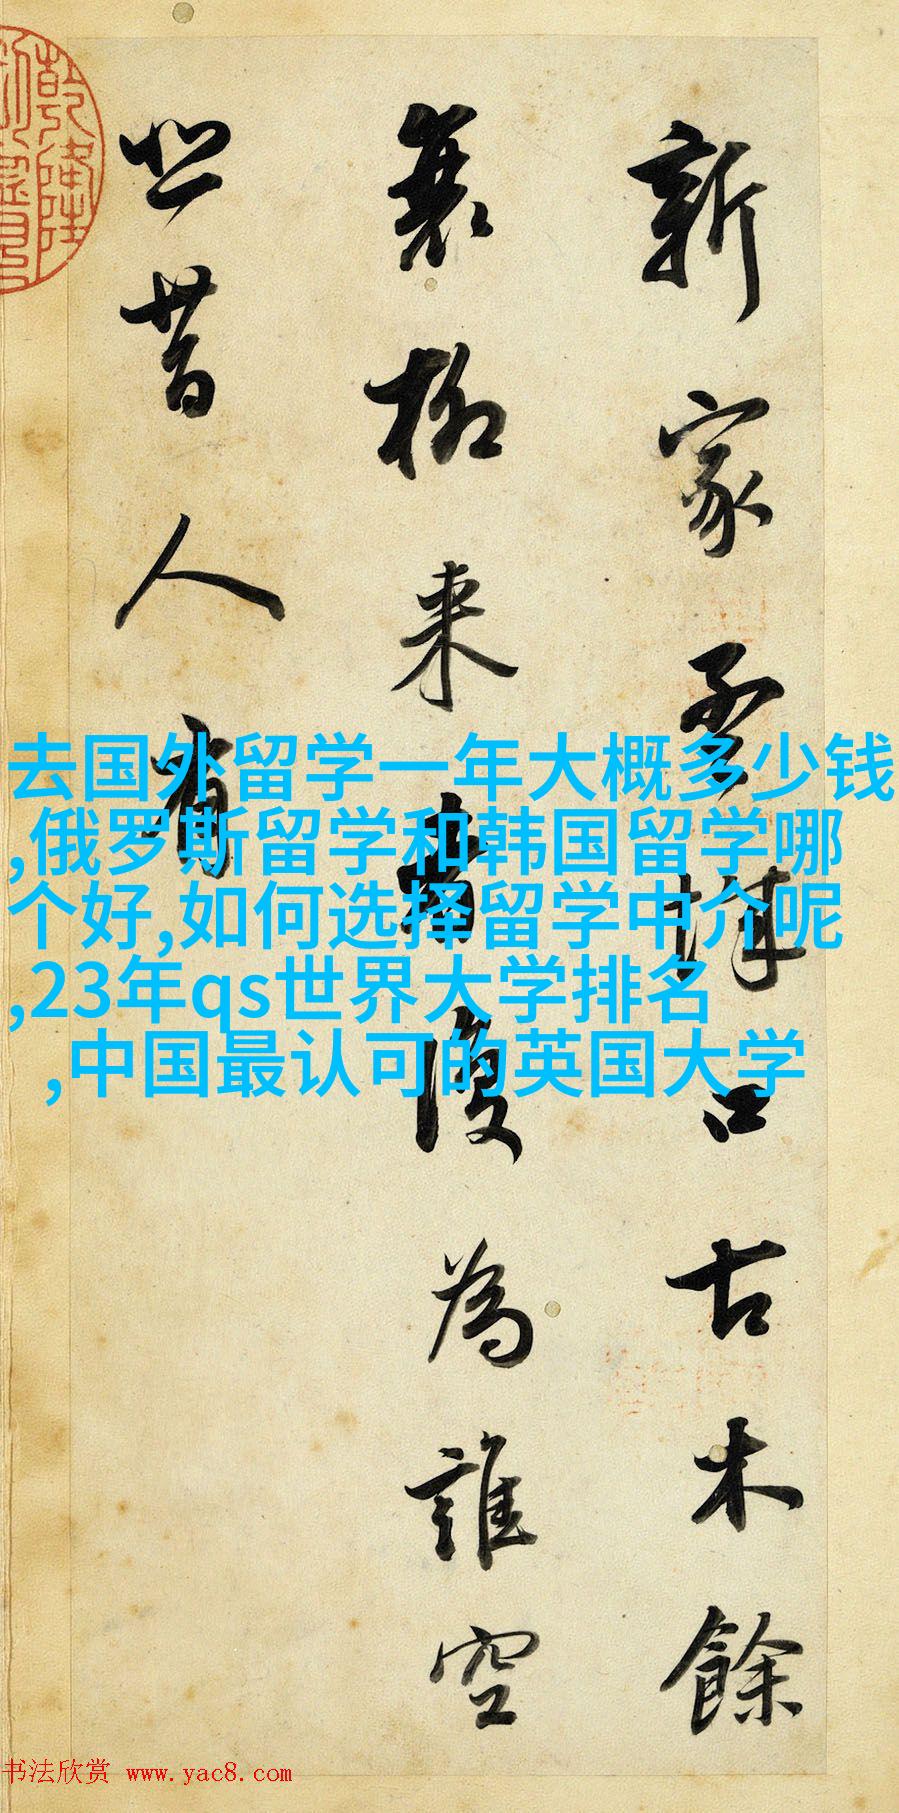 新家孟城口古木餘
衰柳来者復為誰空
悲昔人有
乾隆
去国外留学一年大概多少钱
,俄罗斯留学和韩国留学哪
个好,如何选择留学中介呢
,23年qs世界大学排名
,中国最认可的英国大学
书法欣赏 www.yac8.com